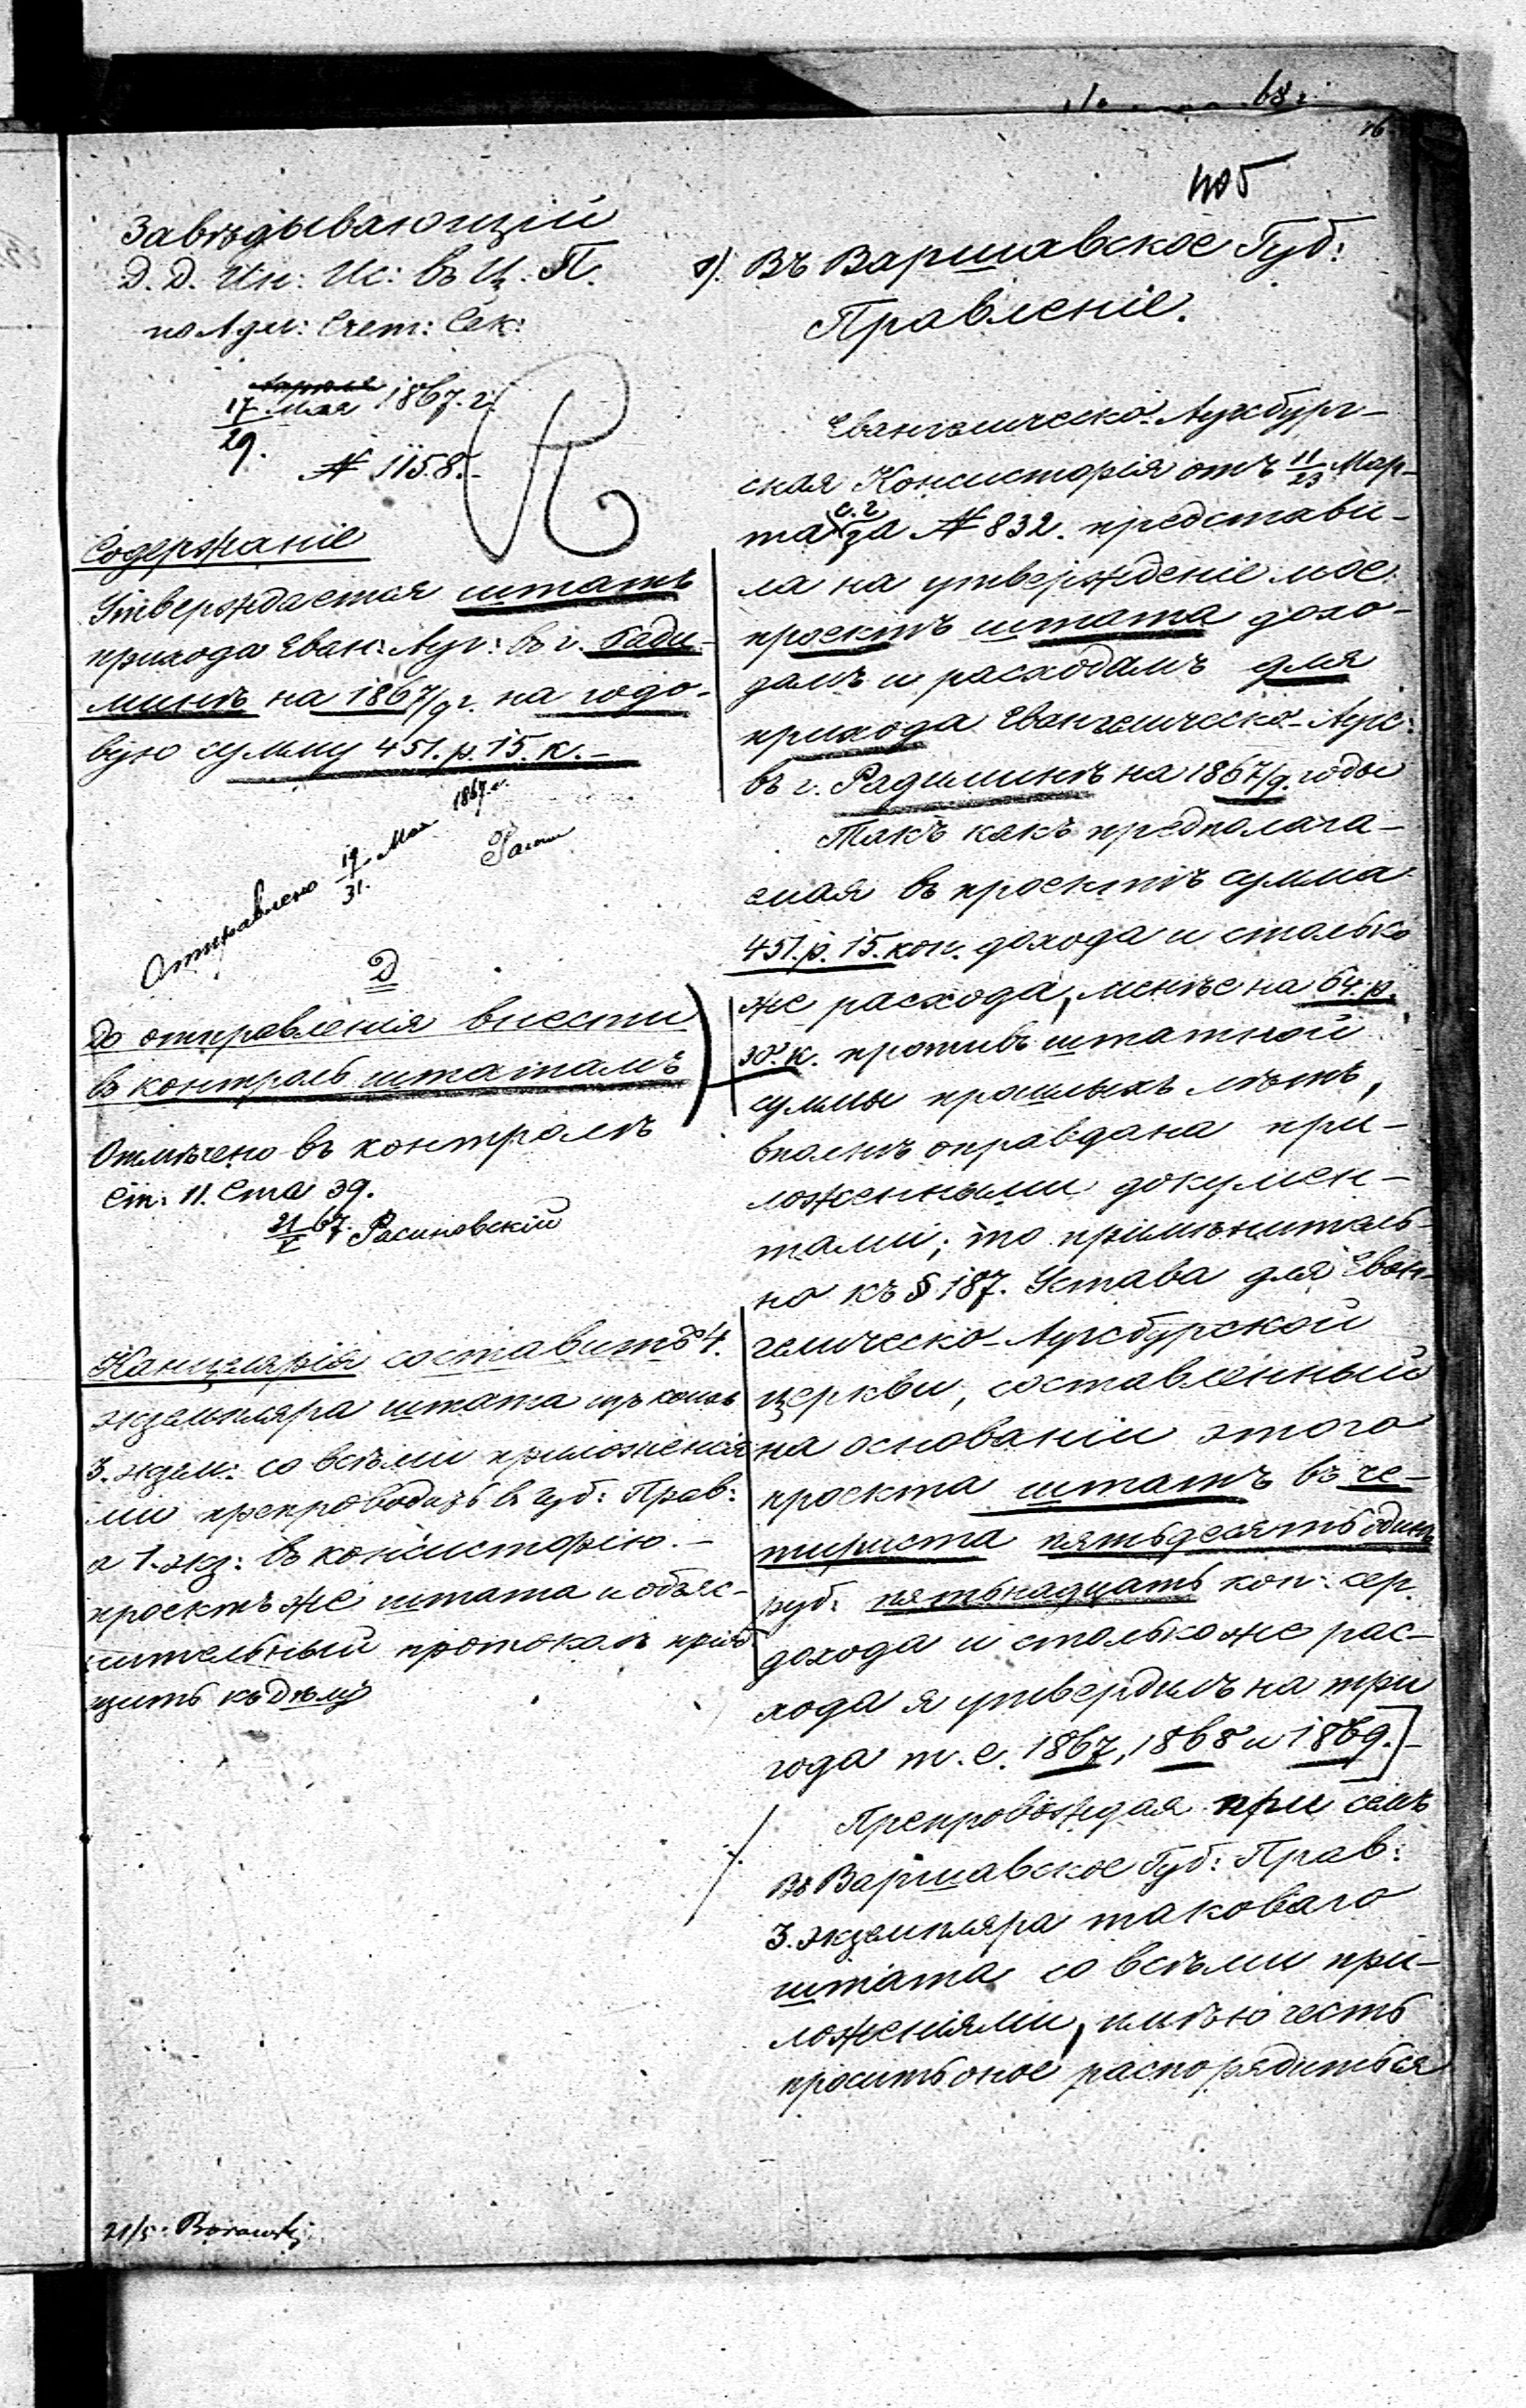 68 г.
405
Завѣдывающій
Д. Д. Ин: Ис: въ Ц. П.
по Адм: Счет: Сек:
17 Мая 1867. г.
29.
№ 1158.-
Содержаніе
Утверждается штатъ
прихода Еван: Ауг: въ г. Ради-
минѣ на 1867/9 г. на годо-
вую сумму 451. р. 15. к.-
Отправлено 19/31. Мая 1867. г.
До отправленія внести
въ контроль штатамъ
Отмѣчено въ контролѣ
ст: 11. Ста 39.
21/V 67. Расиновскій
Канцелярія составитъ 4.
экземпляра штата изъ коихъ
3. экзем: со всѣми приложенія
ми препроводить въ Губ: Прав:
а 1. экз: въ консисторію.-
проектъ же штата и объяс-
нительный протоколъ пріоб
щить къ дѣлу
21/5.
1). Въ Варшавское Губ:
Правленіе.
Евангелическо-Аугсбург-
ская Консисторія отъ 11/23 Мар-
та с. г. за № 832. представи-
ла на утвержденіе мое
проектъ штата дохо-
дамъ и расходамъ для
прихода Евангелическо-Аугс:
въ г. Радиминѣ на 1867/9. годы
Такъ какъ предполага-
емая въ проектѣ сумма
451. р. 15. коп. дохода и столько
же расхода, менѣе на 64. р.
30. к. противъ штатной
суммы прошлыхъ лѣтъ,
вполнѣ оправдана при-
ложенными докумен-
тами; то примѣнитель-
но къ § 187. Устава для Еван-
гелическо-Аугсбурской
церкви, составленный
на основаніи этого
проекта штатъ въ че-
тыриста пятьдесятъ одинъ
руб: пятьнадцать коп: сер.
дохода и столько же рас-
хода я утвердилъ на три
года т. е. 1867, 1868 и 1869.-
Препровождая при семъ
въ Варшавское Губ: Прав:
3. экземпляра таковаго
штата со всѣми при-
ложеніями, имѣю честь
просить оное распорядиться